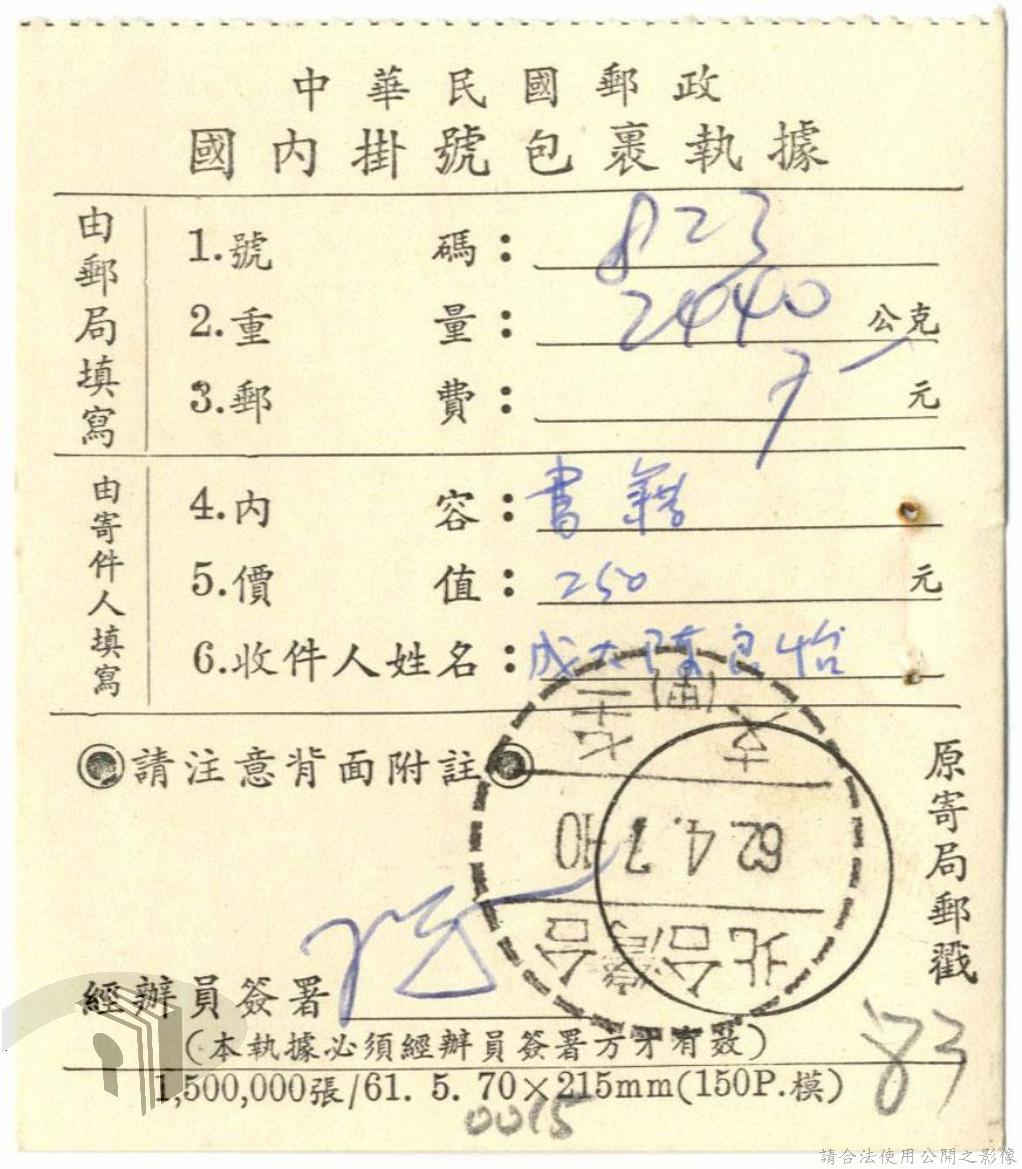 中華民國郵政
國內掛號包裹執據
由郵局填寫
1.號碼：823
2.重量：2440公克
3.郵費：7元
由寄件人填寫
4.內容：書籍
5.價值：250元
6.收件人姓名：成大陳良怡
請注意背面附註
原寄局郵戳
台灣 台北
62.4.7
10
經辦員簽署
(本執據必須經辦員簽署方才有效)
1,500,000張/61. 5. 70×215mm(150P.模)
83
0015
請合法使用公開之影像